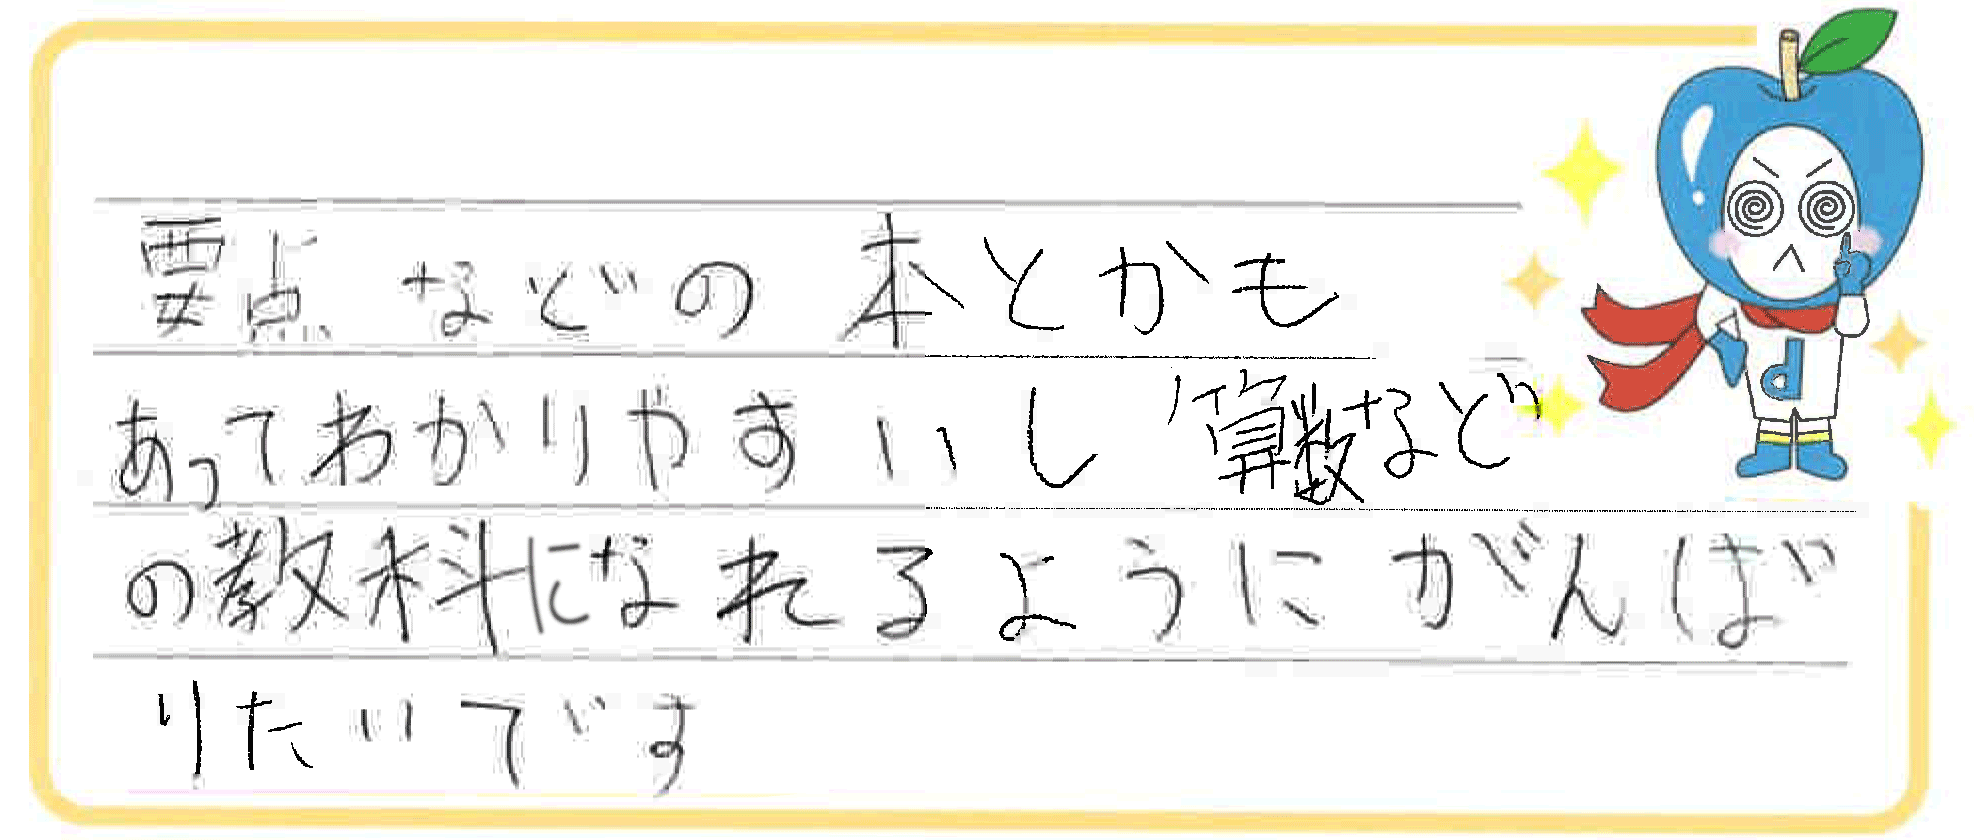 要点などの本とかも
あってわかりやすいし算数など
の教科になれるようにがんば
りたいです
d